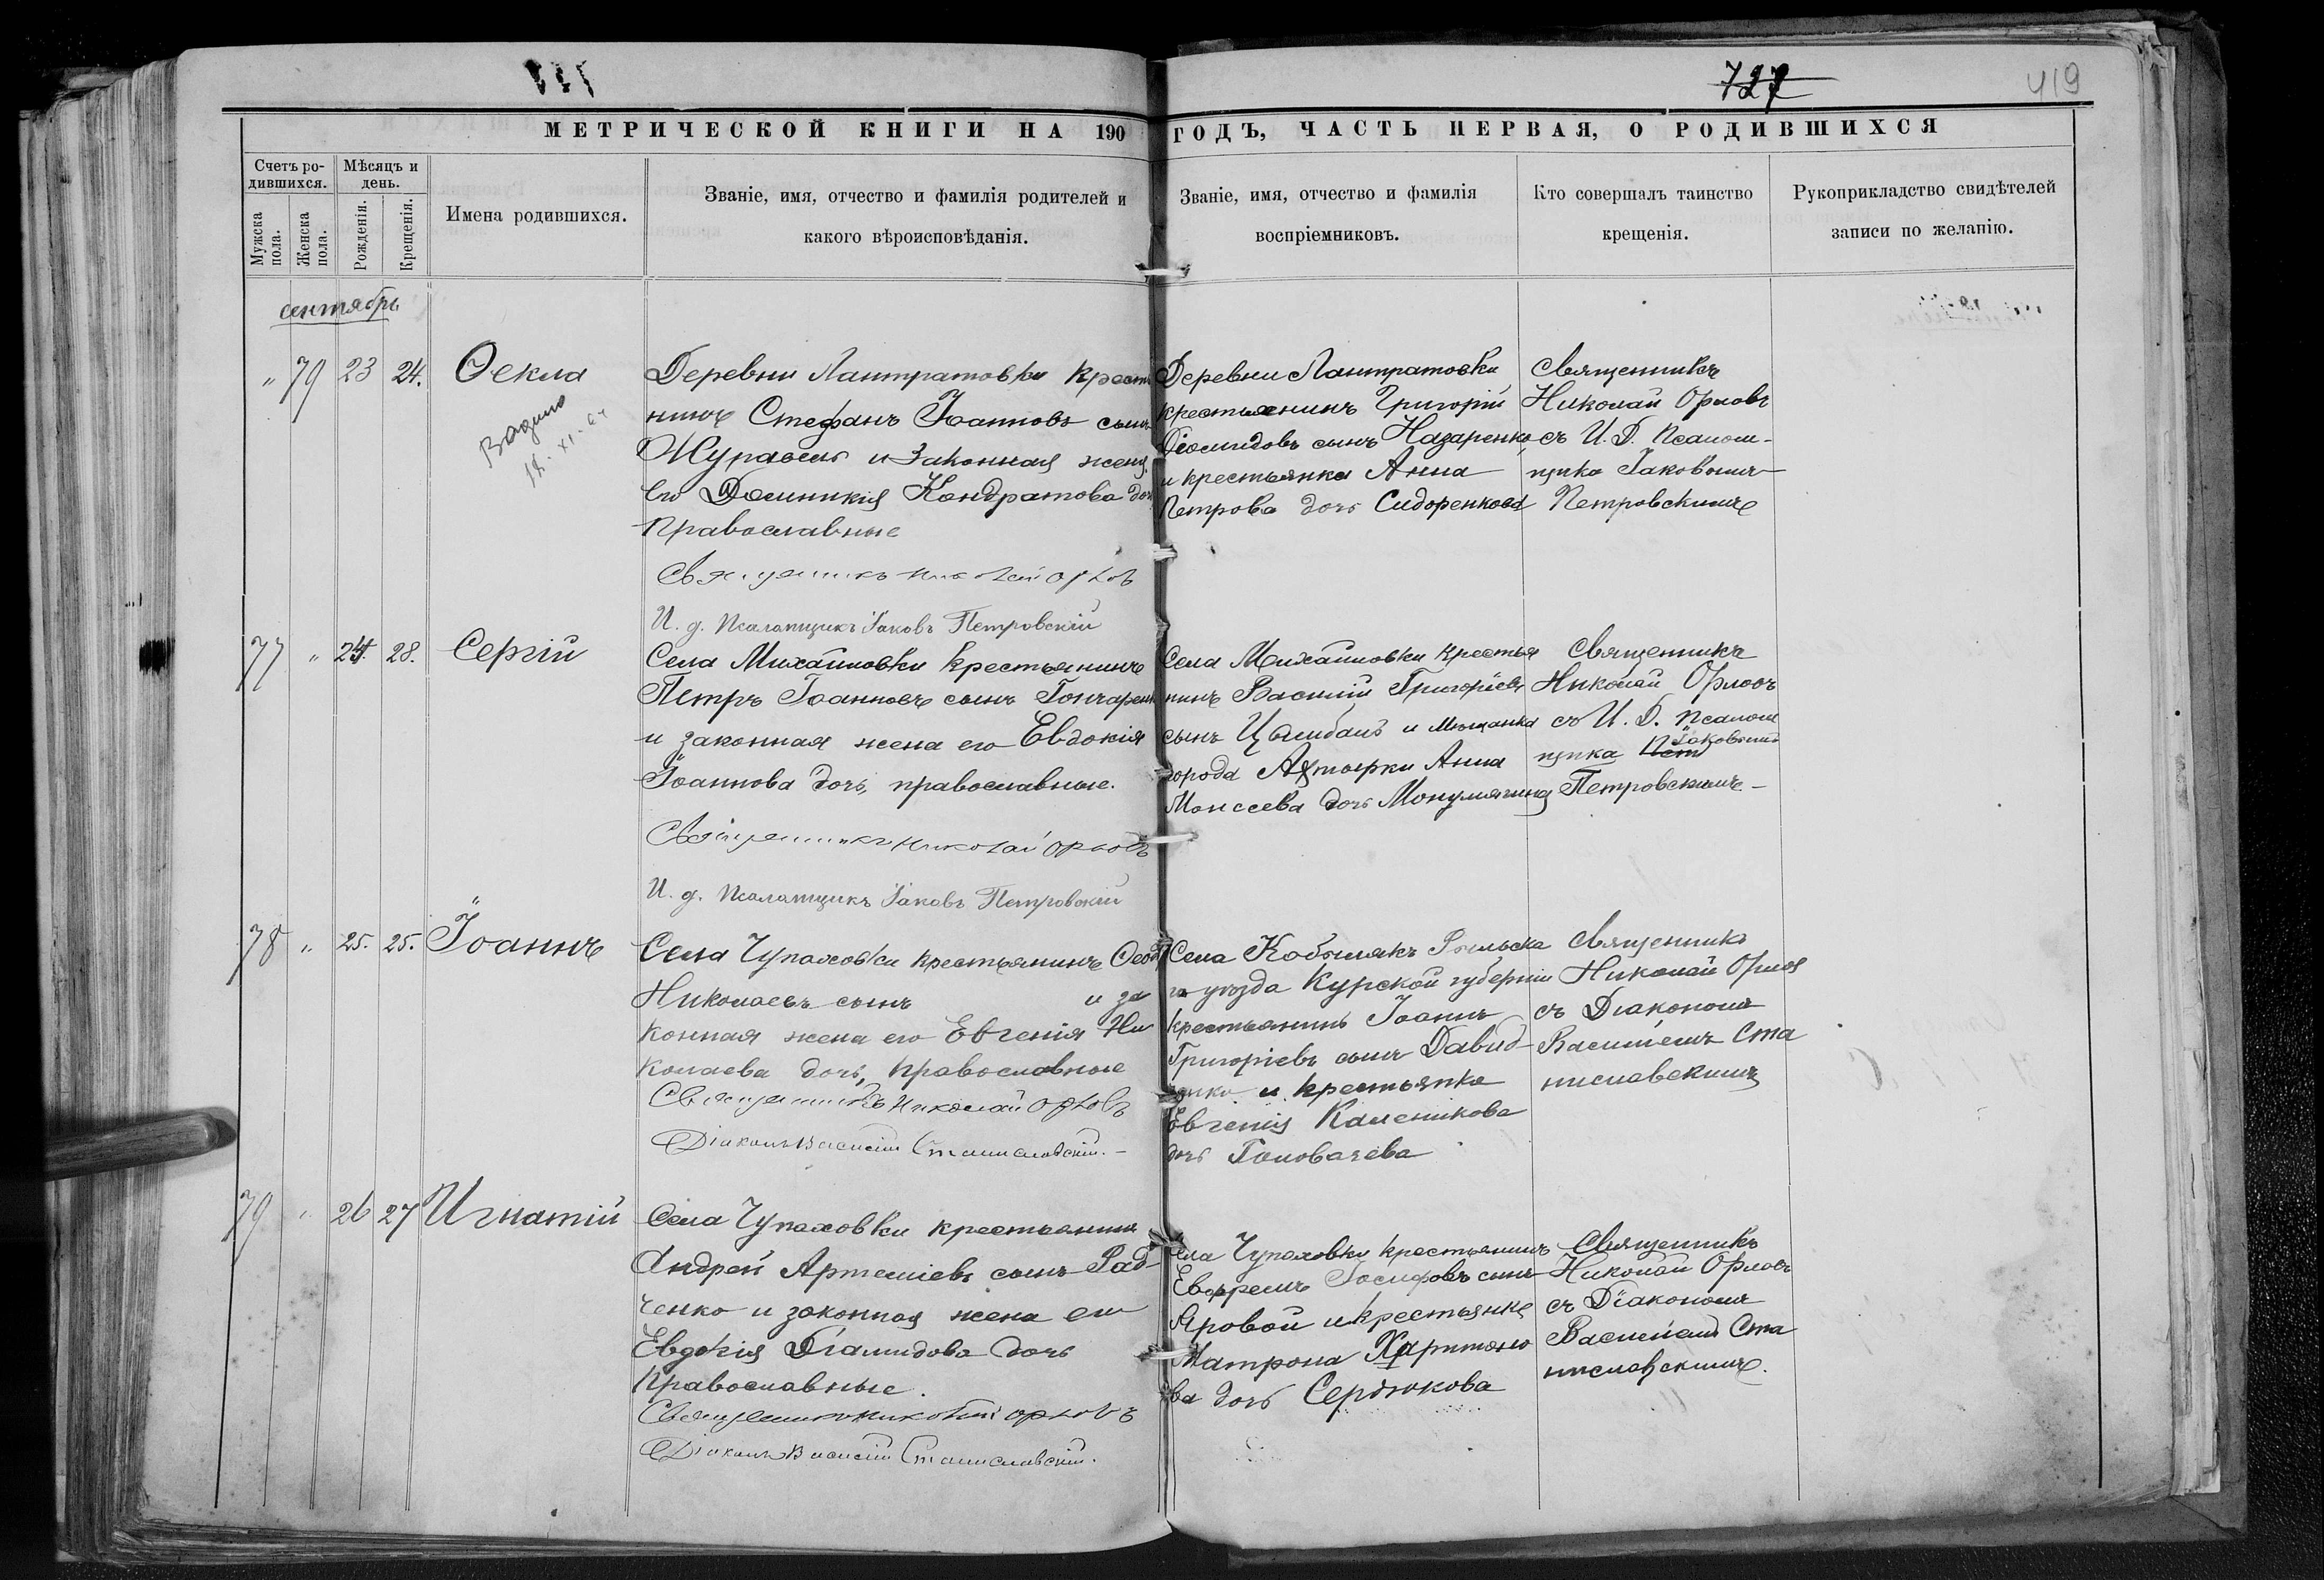 727
419
МЕТРИЧЕСКОЙ КНИГИ НА 190 ГОДЪ, ЧАСТЬ ПЕРВАЯ, О РОДИВШИХСЯ
Счетъ ро-
дившихся.
Мужска
пола.
Женска
пола.
Мѣсяцъ и
день.
Рожденія.
Крещенія.
Имена родившихся.
Званіе, имя, отчество и фамилія родителей и
какого вѣроисповѣданія.
Званіе, имя, отчество и фамилія
воспріемниковъ.
Кто совершалъ таинство
крещенія.
Рукоприкладство свидѣтелей
записи по желанію.
сентябрь
" 79 23 24. Ѳекла
18. XI-
Деревни Лантратовки крестья
нинъ Стефанъ Іоанновъ сынъ
Журавель и законная жена
его Домникія Кондратова дочь
православные
Священникъ Николай Орловъ
И. д. Псаломщикъ Іаковъ Петровскій
Деревни Лантратовки
крестьянинъ Григорій
Діомидовъ сынъ Назаренко
и крестьянка Анна
Петрова дочь Сидоренкова
Священникъ
Николай Орловъ
съ И. Д. Псалом-
щика Іаковымъ
Петровскимъ
77 " 24. 28. Сергій
Села Михайловки крестьянинъ
Петръ Іоанновъ сынъ Гончаренк
и законная жена его Евдокія
Іоаннова дочь, православные.
Священникъ Николай Орловъ
И. д. Псаломщикъ Іаковъ Петровскій
Села Михайловки крестья
нинъ Василій Григоріевъ
сынъ Цымбалъ и мѣщанка
города Ахтырки Анна
Моисеева дочь
Священникъ
Николай Орловъ
съ И. Д. Псалом
щика Пет Іаковымъ
Петровскимъ
78 " 25. 25. Іоаннъ
Села Чупаховки крестьянинъ Ѳеод
Николаевъ сынъ и за
конная жена его Евгенія Ни
колаева дочь, православные
Священникъ Николай Орловъ
Діаконъ Василій Станиславскій.
Села Кобылякъ Рыльска
го уѣзда Курской губерніи
крестьянинъ Іоаннъ
Григоріевъ сынъ Давид-
енко и крестьянка
Евгенія Каленикова
дочь Головачева
Священникъ
Николай Орлов
съ Діакономъ
Василіемъ Ста
ниславскимъ
79 " 26 27 Игнатій
Села Чупаховки крестьянинъ
Андрей Артеміевъ сынъ Рад-
ченко и законная жена его
Евдокія Діамидова дочь
православные.
Священникъ Николай Орловъ
Діаконъ Василій Станиславскій.
Села Чупаховки крестьянинъ
Евфремъ Іосифовъ сынъ
Яровой и крестьянка
Матрона Харитоно
ва дочь Сердюкова
Священникъ
Николай Орловъ
съ Діакономъ
Василіемъ Ста
ниславскимъ.